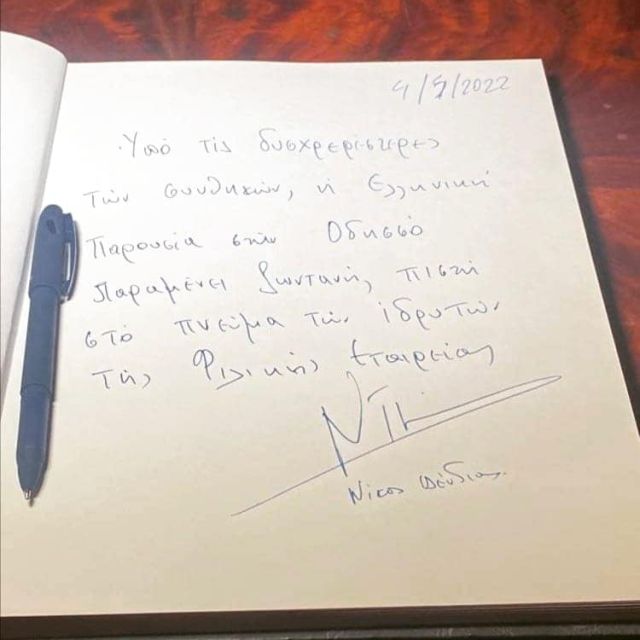 4/4/2022
Υπό τις δυσχερέστερες
των συνθηκών, η Ελληνική
Παρουσία στην Οδησσό
παραμένει ζωντανή, πιστή
στο πνεύμα των ιδρυτών
της Φιλικής Εταιρείας
Νίκος Δένδιας